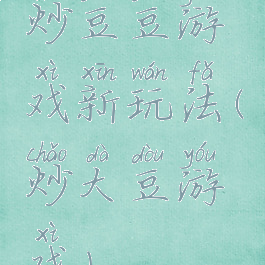 炒豆豆游
xì xīn wán fǎ
戏新玩法(
chǎo dà dòu yóu
炒大豆游
xì
戏)